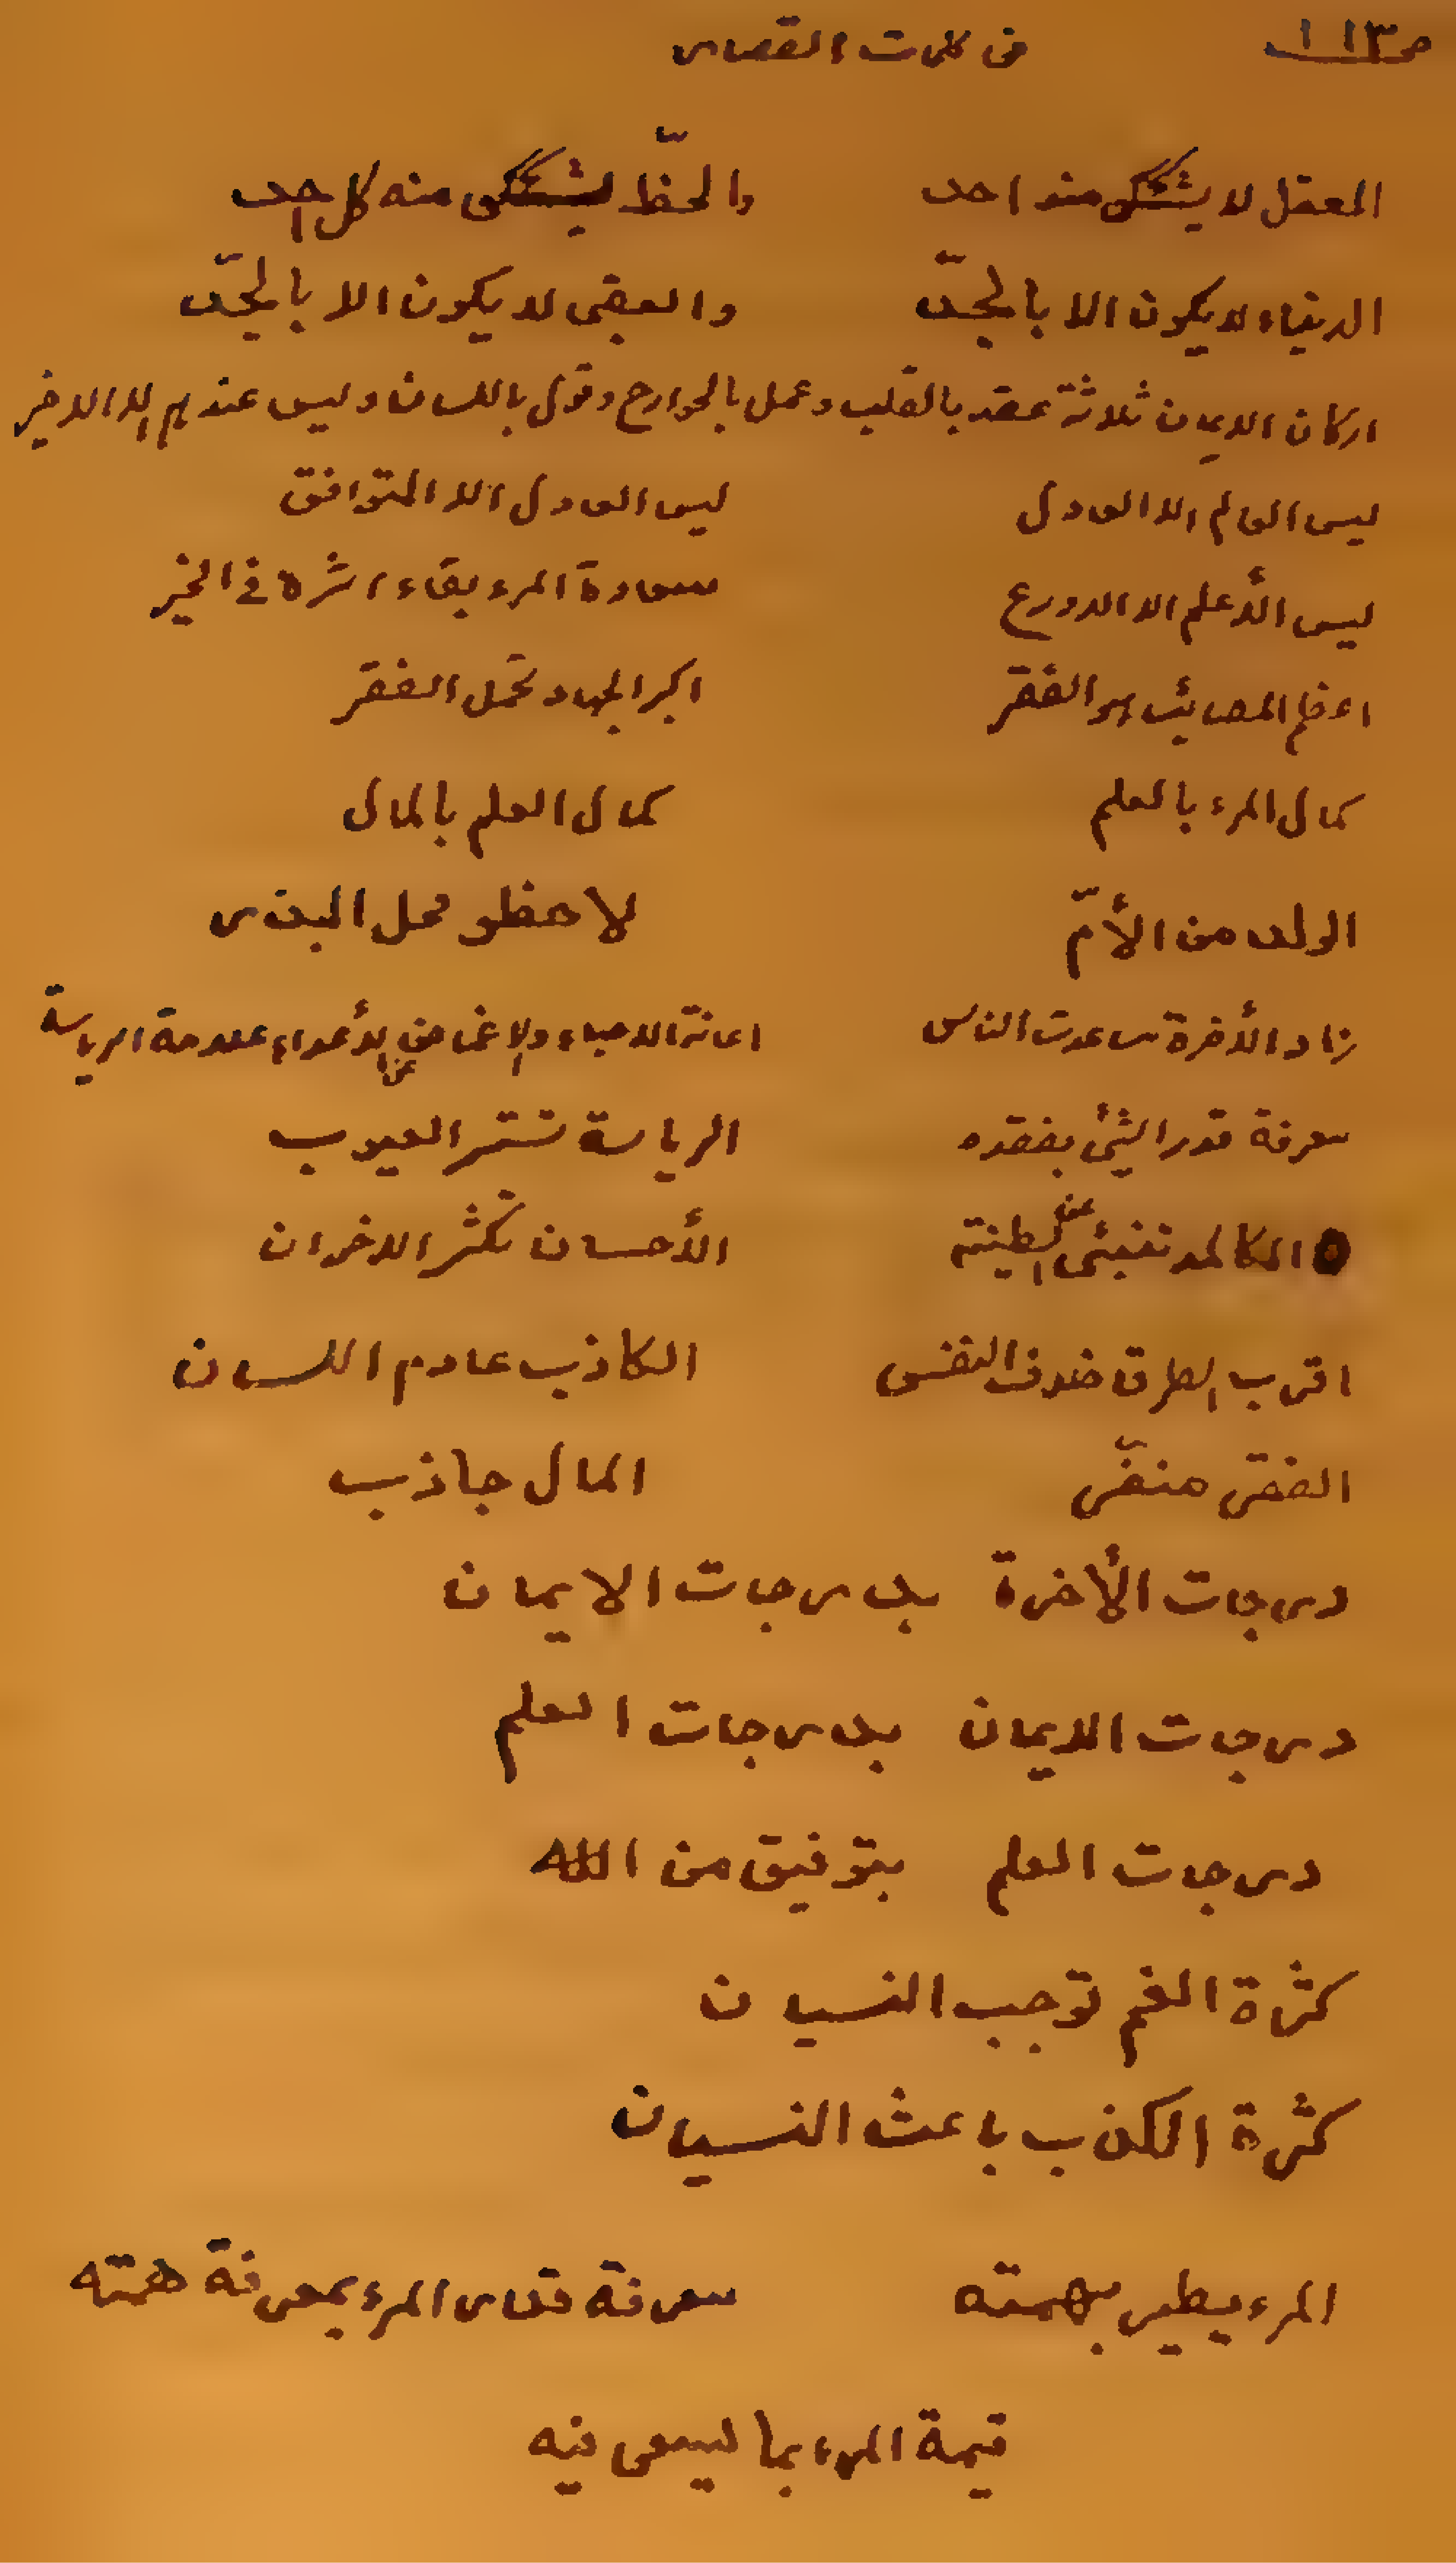 ص١١٣ في كلمات القصار
العقل لا يشتكى منه احد والحظّ ليشتكى منه كل احد
الدنياء لا يكون الا بالجدّ والعقبى لا يكون الا بالجدّ
اركان الايمان ثلاثة عقد بالقلب وعمل بالجوارح وقول باللسان وليس عندهم إلا الاخير
ليس العالم الا العادل ليس العادل الا المتوافق
ليس الأعلم الا الاورع سعادة المرء بقاء اثره في الخير
اعظم المصائب هو الفقر اكبر الجهاد تحمل الفقر
كمال المرء بالعلم كمال العلم بالمال
الولد من الأمّ لاحظو محل البذر
زاد الأخرة مساعدت الناس اعانة الاحباء والإغماض عن الأعداء علامة الرياسة
معرفة قدر الشئ بفقده الرياسة تستر العيوب
المكالمه تنبئى عن الطينة الأحسان تكثر الاخوان
اقرب الطرق خلاف النفس الكاذب عادم اللسان
الفقر منفّر المال جاذب
درجات الأخرة بدرجات الايمان
درجات الايمان بدرجات العلم
درجات العلم بتوفيق من الله
كثرة الغم توجب النسيان
كثرة الكذب باعث النسيان
المرء يطير بهمته معرفة قدر المرء بمعرفة همته
قيمة المرء بما ليسعى فيه